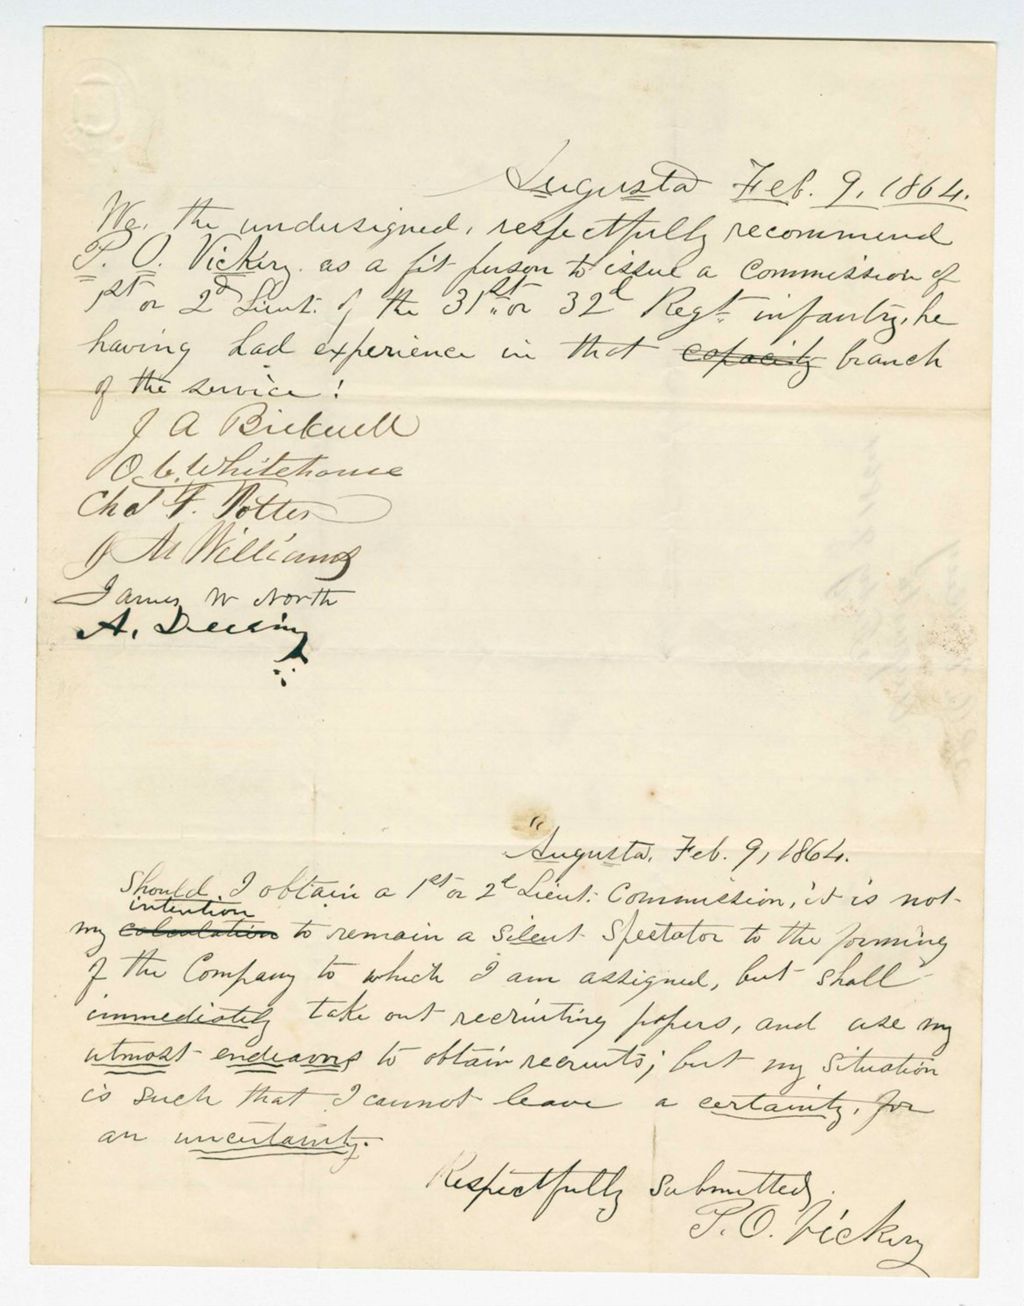 Augusta Feb. 9, 1864.
We, the undersigned, respectfully recommend
P. O. Vickery. as a fit person to issue a Commission of
1st or 2d Lieut. of the 31st or 32d Regt. infantry, he
having had experience in that capacity branch
of the service:
J A Bicknell
O. C. Whitehouse
Chas F. Potter
J M Williams
James W North
A. Deering
Augusta, Feb. 9, 1864.
Should I obtain a 1st or 2d Lieut. Commission, it is not
intention
my calculation to remain a silent Spectator to the forming
of the Company to which I am assigned, but shall
immediately take out recruiting papers, and use my
utmost endeavors to obtain recruits; but my situation
is such that I cannot leave a certainty, for
an uncertainty.
Respectfully Submitted,
P. O. Vickery